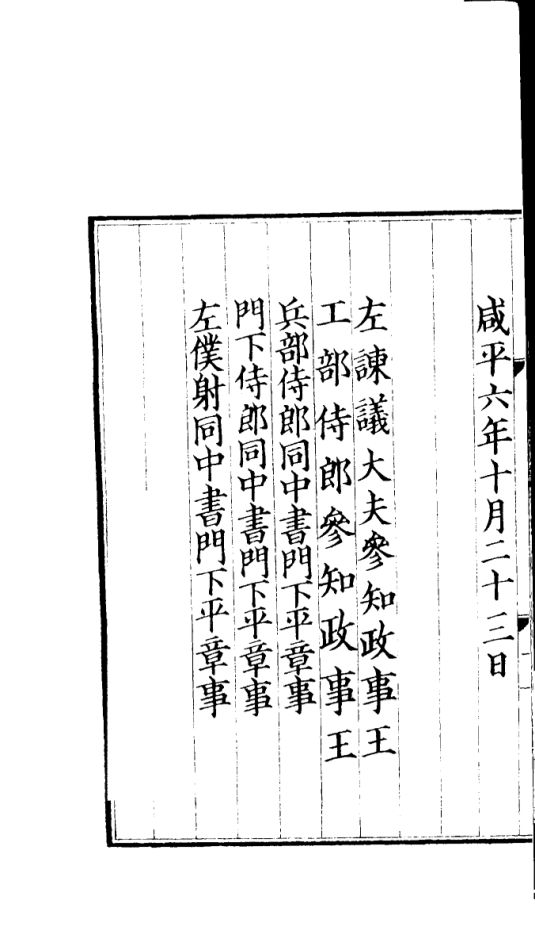 咸平六年十月二十三日
左諫議大夫參知政事王
工部侍郎參知政事王
兵部侍郎同中書門下平章事
門下侍郎同中書門下平章事
左僕射同中書門下平章事